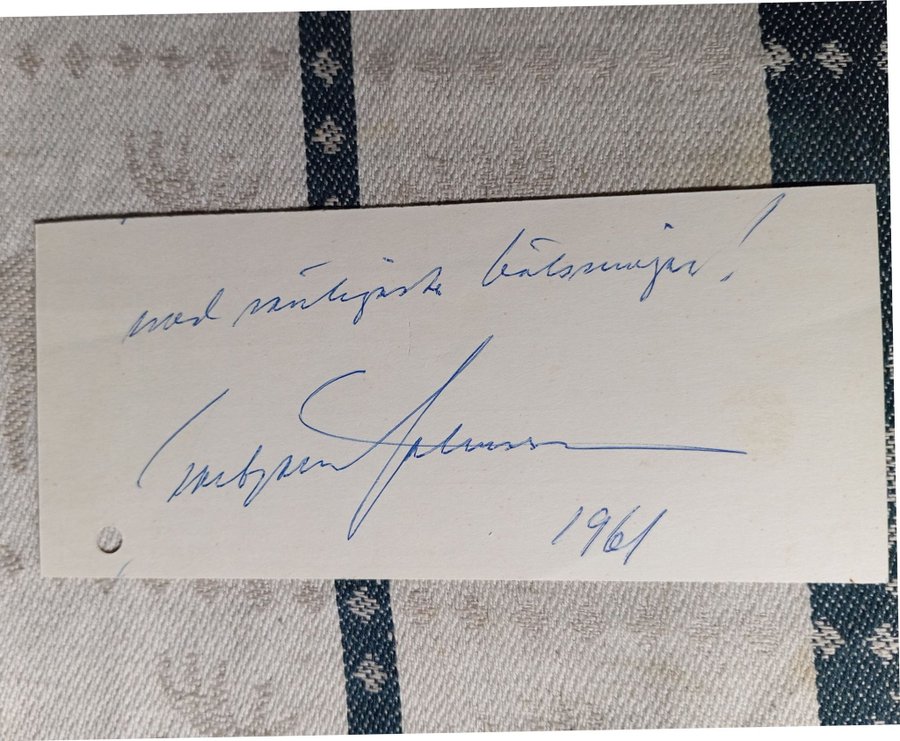 med vänligaste hälsningar!
Torbjörn Johnsson
1961